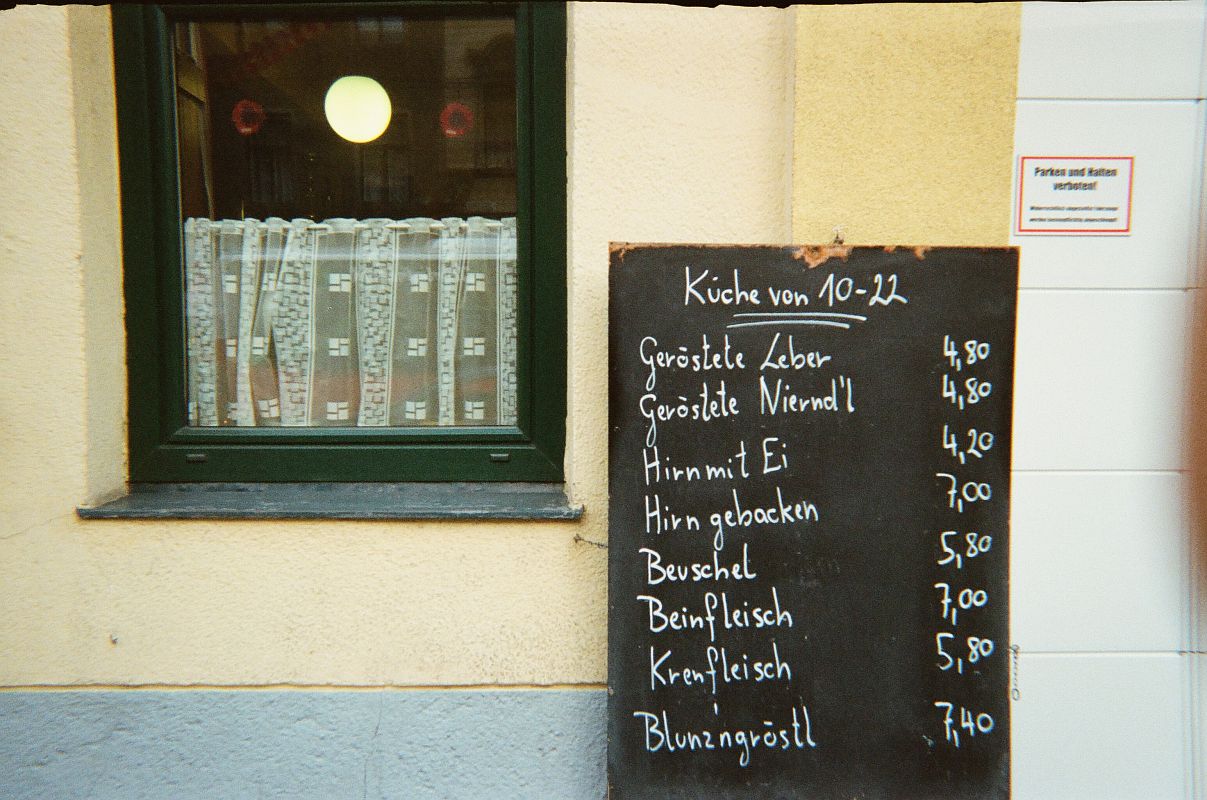 Küche von 10-22
Geröstete Leber 4,80
Geröstete Niernd'l 4,80
Hirn mit Ei 4,20
Hirn gebacken 7,00
Beuschel 5,80
Beinfleisch 7,00
Krenfleisch 5,80
Blunz'ngröstl 7,40
Parken und Halten
verboten!